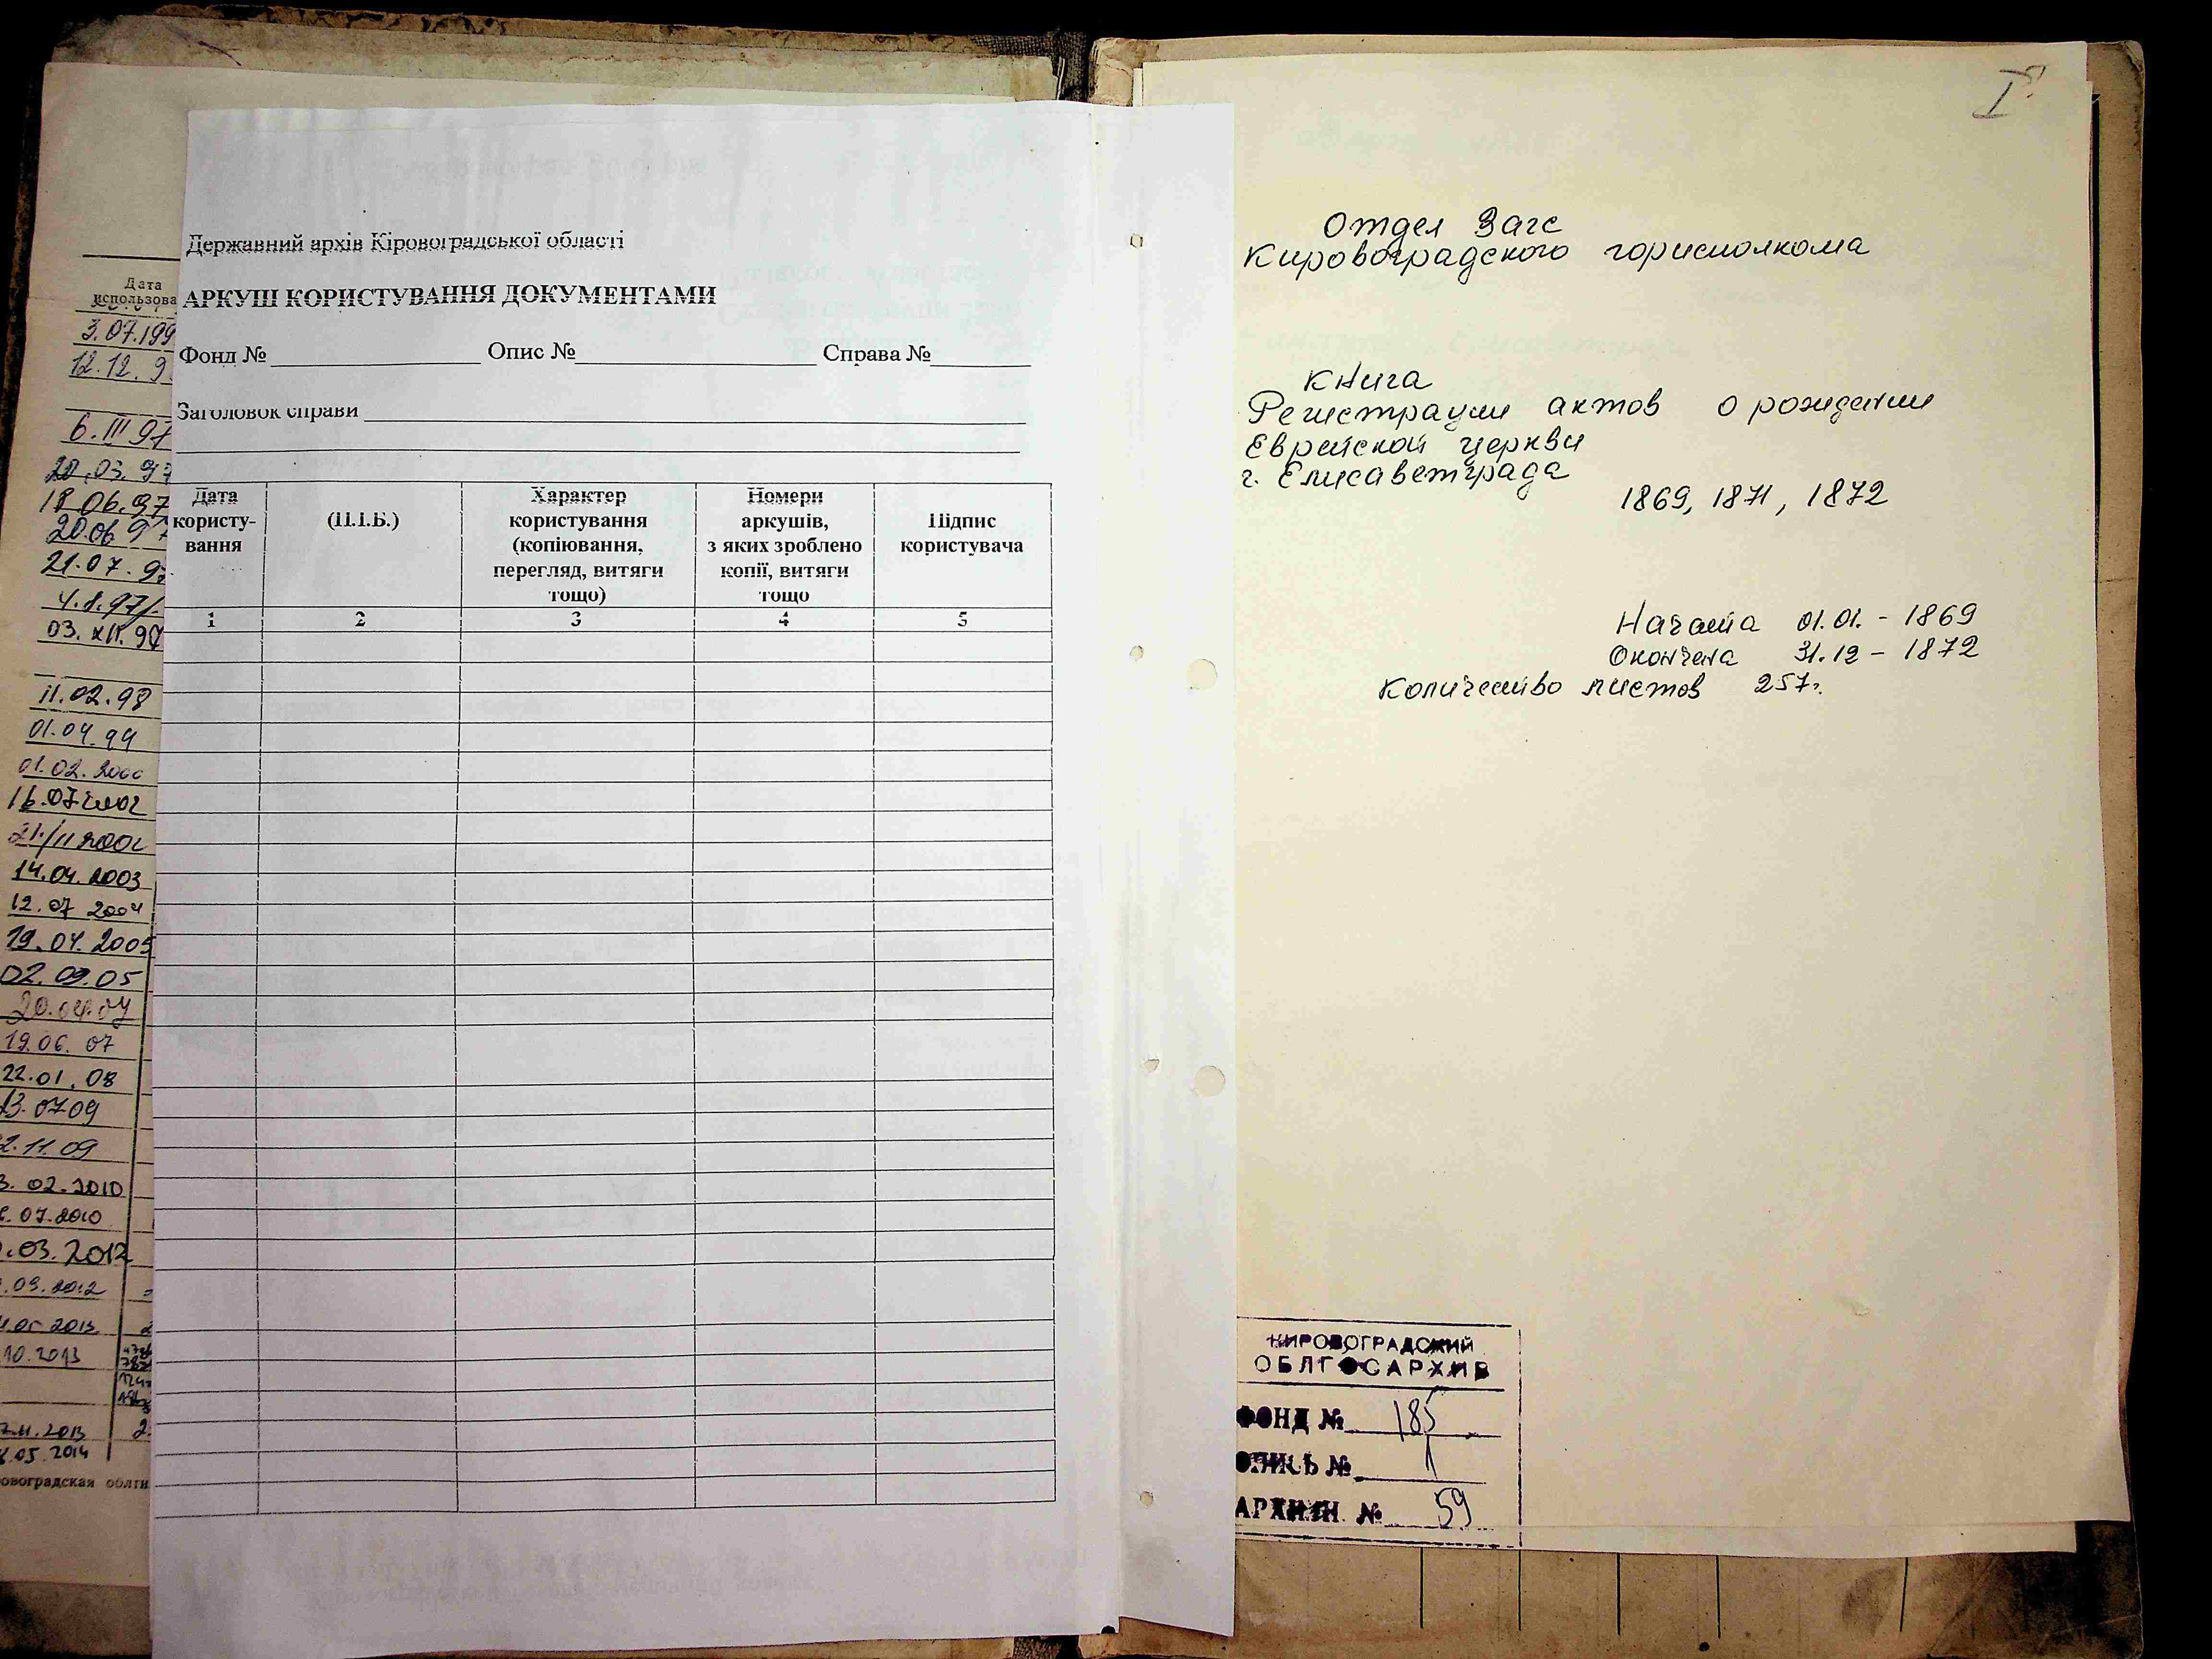 Дата
использова
3.07.199
12.12.9
6.III 97
20.03.97
18.06.97
20.06 97
21.07.97
4.8.97
03.XII.97
11.02.98
01.04.99
01.02.2000
16.07.2002
21/11 2002
14.04.2003
12.07 2004
19.04.2005
02.09.05
20.04.07
19.06.07
22.01.08
13.07 09
2.11.09
3.02.2010
.07.2010
.03.2012
.09.2012
.2013
10.2013
.11.2013
.05.2014
овоградская облти
Державний архів Кіровоградської області
АРКУШ КОРИСТУВАННЯ ДОКУМЕНТАМИ
Фонд № Опис № Справа №
Заголовок справи
Дата користу-вання
(П.І.Б.)
Характер користування (копіювання, перегляд, витяги тощо)
Номери аркушів, з яких зроблено копії, витяги тощо
Підпис користувача
1 2 3 4 5
I
Отдел Загс
Кировоградского горисполкома
Книга
Регистрации актов о рождении
Еврейской церкви
г. Елисаветграда
1869, 1871, 1872
Начата 01.01. - 1869
Окончена 31.12 - 1872
Количество листов 257
КИРОВОГРАДСКИЙ
ОБЛГОСАРХИВ
ФОНД № 185
ОПИСЬ № 1
АРХИВН. № 59